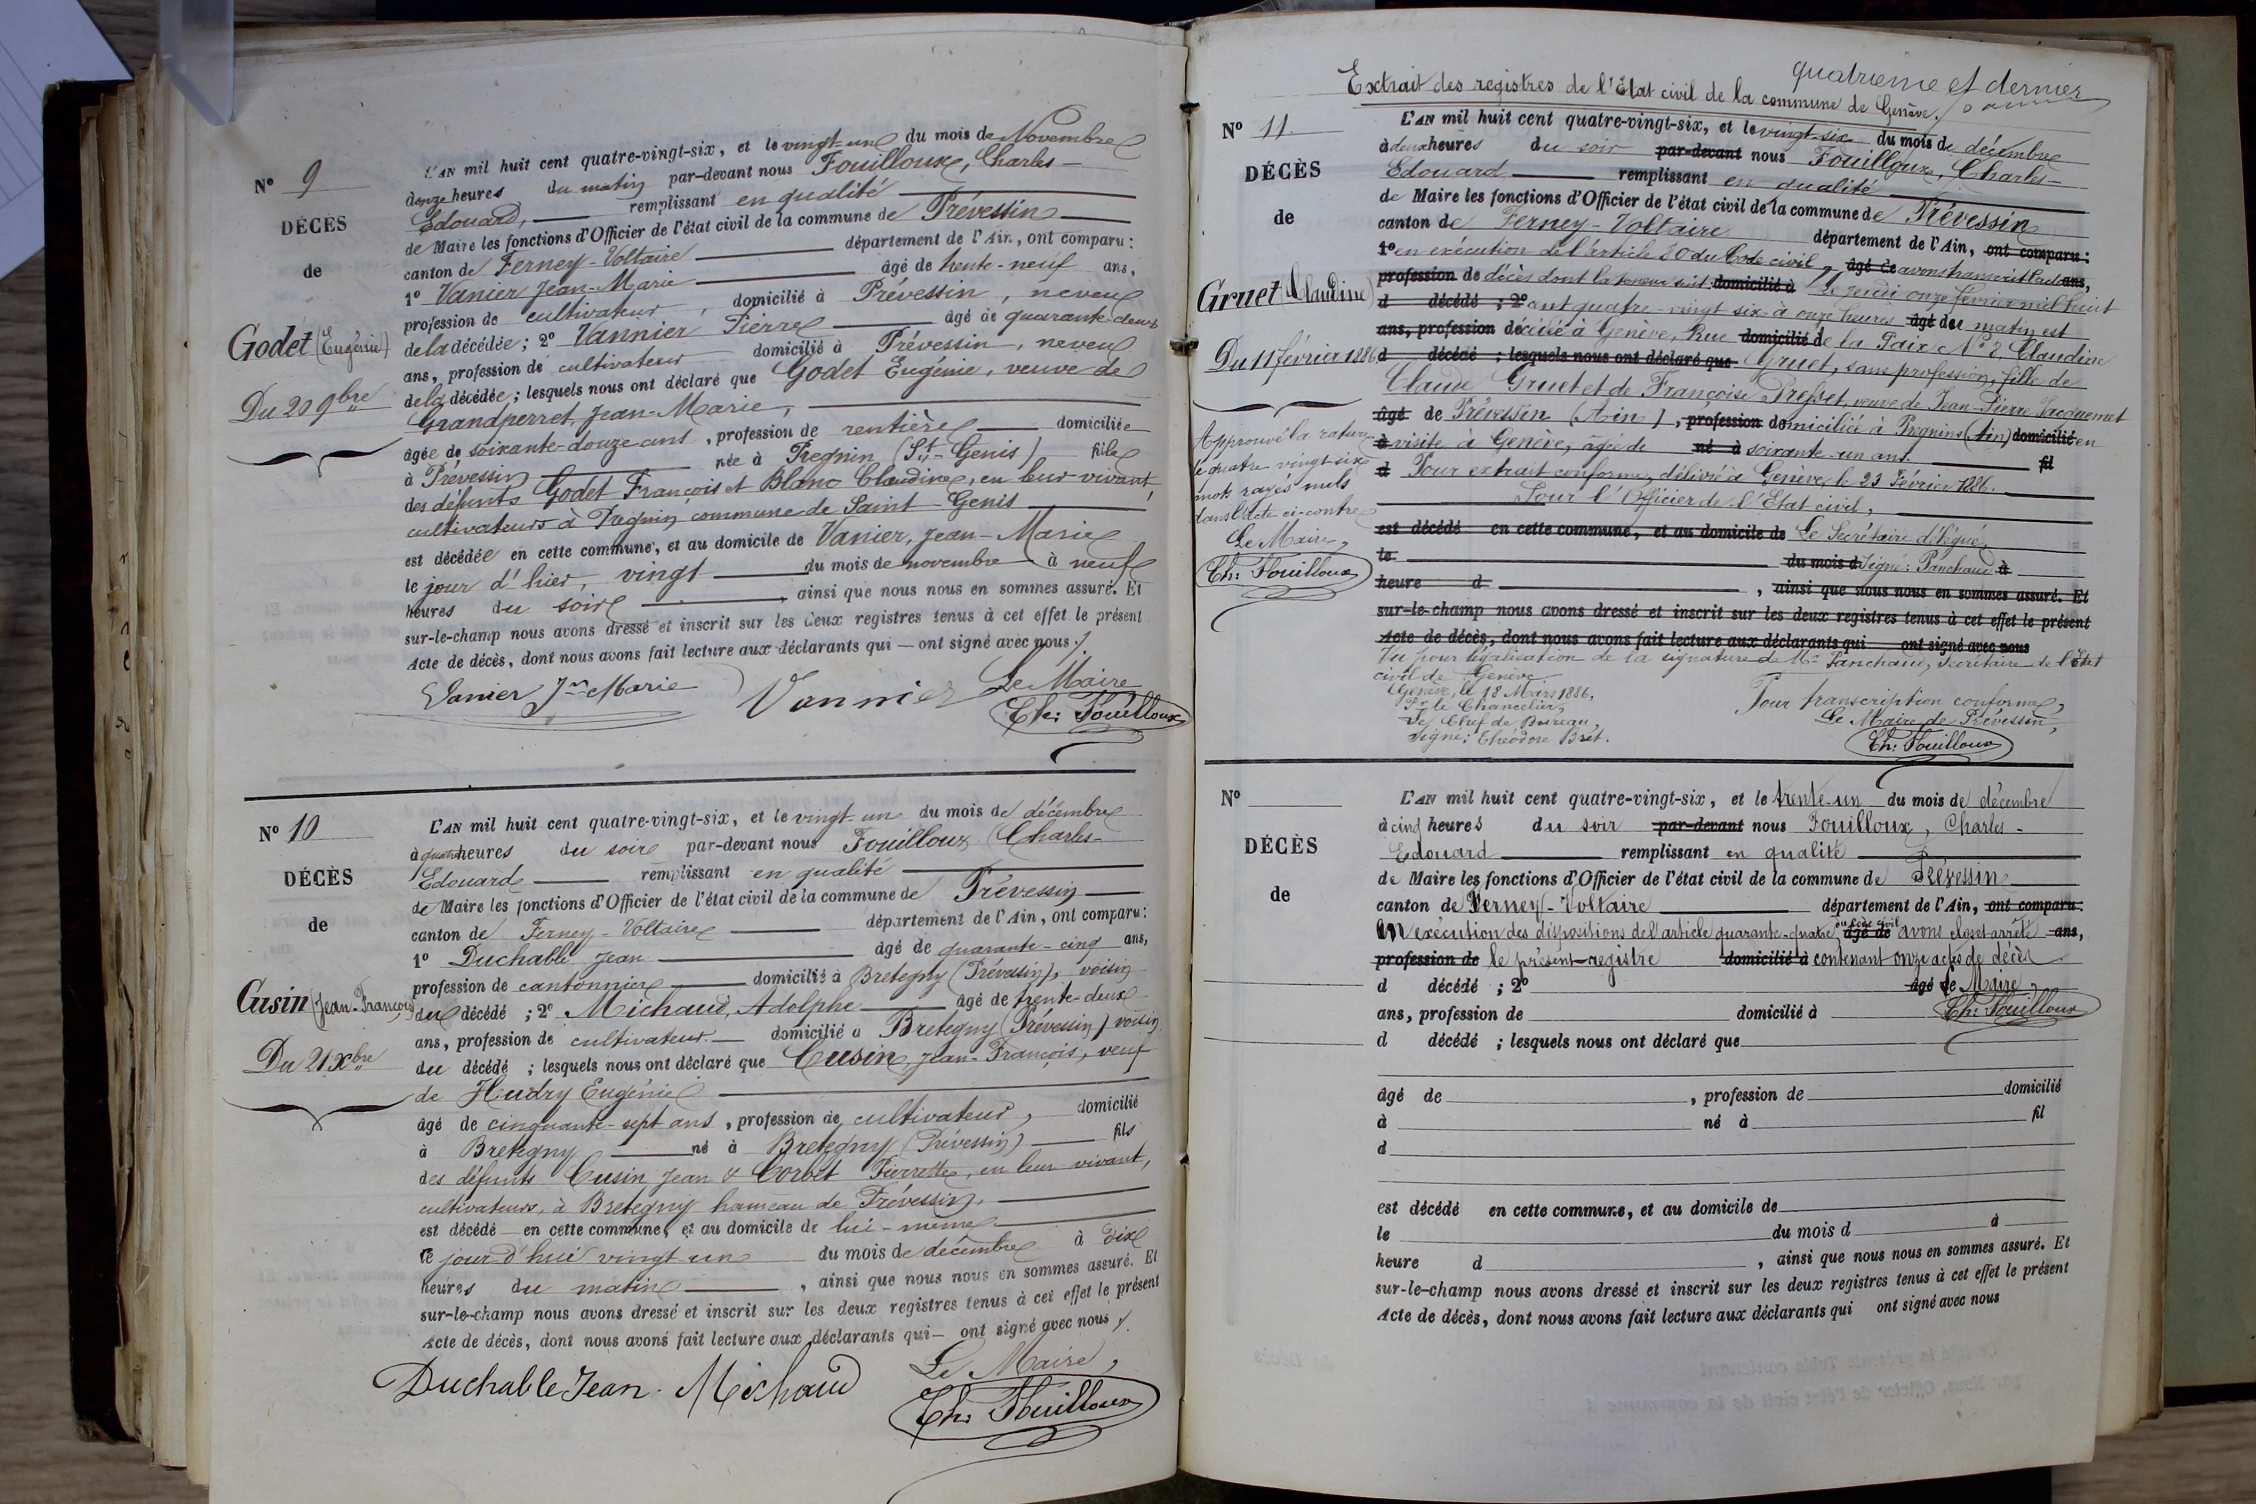 Nº 9
DÉCÈS
de
Godet (Eugénie)
Du 20 9bre
L'AN mil huit cent quatre-vingt-six, et le vingt-un du mois de Novembre
à onze heures du matin par-devant nous Fouilloux, Charles-
Edouard, remplissant en qualité
de Maire les fonctions d'Officier de l'état civil de la commune de Prévessin
canton de Ferney-Voltaire département de l'Ain, ont comparu:
1º Vanier Jean-Marie âgé de trente-neuf ans,
profession de cultivateur, domicilié à Prévessin, neveu
de la décédée; 2º Vannier Pierre âgé de quarante-deux
ans, profession de cultivateur domicilié à Prévessin, neveu
de la décédée; lesquels nous ont déclaré que Godet Eugénie, veuve de
Grandperret, Jean-Marie,
âgée de soixante-douze ans, profession de rentière domiciliée
à Prévessin née à Pregnin (St-Genis) fille
des défunts Godet François et Blanc Claudine, en leur vivant,
cultivateurs à Pregnin commune de Saint-Genis
est décédée en cette commune, et au domicile de Vanier, Jean-Marie
le jour d'hier, vingt du mois de novembre à neuf
heures du soir, ainsi que nous nous en sommes assuré. Et
sur-le-champ nous avons dressé et inscrit sur les deux registres tenus à cet effet le présent
Acte de décès, dont nous avons fait lecture aux déclarants qui — ont signé avec nous ./.
Vanier Jn Marie Vannier Le Maire
Ch: Fouilloux
Nº 10
DÉCÈS
de
Cusin (Jean-François)
Du 21 Xbre
L'AN mil huit cent quatre-vingt-six, et le vingt-un du mois de décembre
à quatre heures du soir par-devant nous Fouilloux Charles-
Edouard remplissant en qualité
de Maire les fonctions d'Officier de l'état civil de la commune de Prévessin
canton de Ferney-Voltaire département de l'Ain, ont comparu:
1º Duchable Jean âgé de quarante-cinq ans,
profession de cantonnier domicilié à Bretegny (Prévessin), voisin
du décédé; 2º Michaud, Adolphe âgé de trente-deux
ans, profession de cultivateur domicilié à Bretegny (Prévessin) voisin
du décédé; lesquels nous ont déclaré que Cusin, Jean-François, veuf
de Hudry Eugénie
âgé de cinquante-sept ans, profession de cultivateur, domicilié
à Bretegny né à Bretegny (Prévessin) fils
des défunts Cusin Jean & Corbet Pierrette, en leur vivant,
cultivateurs, à Bretegny hameau de Prévessin,
est décédé en cette commune, et au domicile de lui-même
ce jour d'hui vingt-un du mois de décembre à dix
heures du matin, ainsi que nous nous en sommes assuré. Et
sur-le-champ nous avons dressé et inscrit sur les deux registres tenus à cet effet le présent
Acte de décès, dont nous avons fait lecture aux déclarants qui — ont signé avec nous ./.
Duchable Jean. Michaud Le Maire,
Ch: Fouilloux
quatrième et dernier
Extrait des registres de l'Etat civil de la commune de Genève.
Nº 11
DÉCÈS
de
Gruet (Claudine)
Du 11 février 1886
Approuvé la rature
de quatre vingt six
mots rayés nuls
dans l'acte ci-contre
Le Maire,
Ch: Fouilloux
L'AN mil huit cent quatre-vingt-six, et le vingt-six du mois de décembre
à deux heures du soir par-devant nous Fouilloux, Charles-
Edouard remplissant en qualité
de Maire les fonctions d'Officier de l'état civil de la commune de Prévessin
canton de Ferney-Voltaire département de l'Ain, ont comparu:
1º en exécution de l'article 80 du Code civil, âgé de avons transcrit l'acte ans,
profession de décès dont la teneur suit: domicilié à Le jeudi onze février mil huit
d décédé; 2º cent quatre-vingt six à onze heures âgé de du matin est
ans, profession décédée à Genève, Rue domicilié de la Paix Nº 2, Claudine
d décédé; lesquels nous ont déclaré que Gruet, sans profession, fille de
Claude Gruet et de Françoise Presset, veuve de Jean-Pierre Jacquemet
âgé de Prévessin (Ain), profession domiciliée à Pregnins (Ain) domicilié en
à visite à Genève, âgée de né à soixante-un ans fil
d Pour extrait conforme, délivré à Genève le 23 Février 1886.
Pour l'Officier de l'Etat civil,
est décédé en cette commune, et au domicile de Le Secrétaire délégué,
le du mois d Signé: Panchaud à
heure d, ainsi que nous nous en sommes assuré. Et
sur-le-champ nous avons dressé et inscrit sur les deux registres tenus à cet effet le présent
Acte de décès, dont nous avons fait lecture aux déclarants qui ont signé avec nous
Vu pour légalisation de la signature de Mr Panchaud, Secrétaire de l'Etat
civil de Genève
Genève, le 18 Mars 1886,
Pr le Chancelier,
Le Chef de Bureau,
Signé: Théodore Bret.
Pour transcription conforme,
Le Maire de Prévessin,
Ch: Fouilloux
Nº
DÉCÈS
de
L'AN mil huit cent quatre-vingt-six, et le trente-un du mois de décembre
à cinq heures du soir par-devant nous Fouilloux, Charles-
Edouard remplissant en qualité
de Maire les fonctions d'Officier de l'état civil de la commune de Prévessin
canton de Ferney-Voltaire département de l'Ain, ont comparu:
en exécution des dispositions de l'article quarante-quatre du Code civil âgé de avons clos et arrêté ans,
profession de le présent registre domicilié à contenant onze actes de décès
d décédé; 2º âgé de Le Maire,
ans, profession de domicilié à Ch: Fouilloux
d décédé; lesquels nous ont déclaré que
âgé de, profession de domicilié
à né à fil
d
est décédé en cette commune, et au domicile de
le du mois d à
heure d, ainsi que nous nous en sommes assuré. Et
sur-le-champ nous avons dressé et inscrit sur les deux registres tenus à cet effet le présent
Acte de décès, dont nous avons fait lecture aux déclarants qui ont signé avec nous